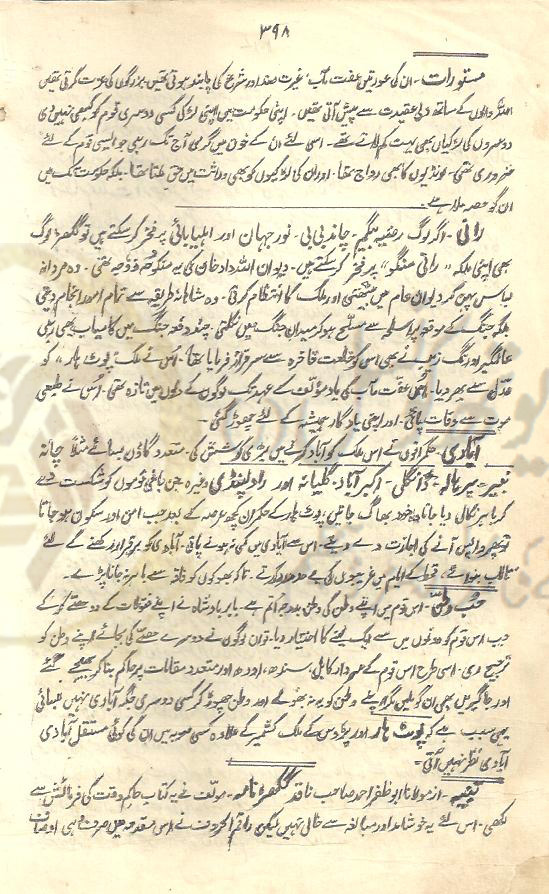 ۳۹۸
مستورات - ان کی عورتیں عفت مآب غیرت مند اور شرع کی پابند ہوتی تھیں بزرگوں کی عزت کرتی تھیں
اللہ والوں کے ساتھ دلی عقیدت سے پیش آتی تھیں - اپنی حکومت میں اپنی لڑکی کسی دوسری قوم کو کبھی نہیں دی
دوسروں کی لڑکیاں بھی بہت کم لاتے تھے - اسی لئے ان کے خون میں گرمی آج تک رہی جو ایسی قوم کے لئے
ضروری تھی - لونڈیوں کا بھی رواج تھا - اور ان کی لڑکیوں کو بھی وراثت میں حق ملتا تھا - بلکہ حکومت تک میں
ان کو حصہ ملا ہے -
رانی - اگر لوگ رضیہ بیگم - چاند بی بی - نور جہاں اور اہلیا بائی پر فخر کر سکتے ہیں تو گکھڑ لوگ
بھی اپنی ملکہ " رانی منگو " پر فخر کر سکتے ہیں - دیوان اللہ داد خان کی یہ منکوحہ زوجہ تھی - وہ مردانہ
لباس پہن کر دیوان عام میں بیٹھتی اور ملک کا انتظام کرتی - وہ شاہانہ طریقہ سے تمام امور انجام دیتی
بلکہ جنگ کے موقعہ پر اسلحہ سے مسلح ہو کر میدان جنگ میں نکلتی - چند دفعہ جنگ میں کامیاب بھی رہی
عالمگیر اورنگ زیب نے بھی اس کو خلعت فاخرہ سے سرفراز فرمایا تھا - اس نے ملک " پوٹ ہار " کو
عدل سے بھر دیا - اس عفت مآب کی یاد مؤلف کے عہد تک لوگوں کے دلوں میں تازہ تھی - اس نے طبعی
موت سے وفات پائی - اور اپنی یادگار ہمیشہ کے لئے چھوڑ گئی -
آبادی - حکمرانوں نے اس ملک کو آباد کرنے میں بڑی کوشش کی - متعدد گاؤں بسائے مثلاً خانہ
تعمیر - پرہالہ - ڈانگلی - اکبر آباد - گلیانہ اور راولپنڈی وغیرہ - جن باغی قوموں کو شکست دے
کر باہر نکال دیا جاتا یا خود بھاگ جاتیں ، پوٹ ہار کے حکمران کچھ عرصہ کے بعد جب امن اور سکون ہو جاتا
تو پھر واپس آنے کی اجازت دے دیتے - اس سے آبادی میں کمی نہ ہونے پاتی - آبادی کو برقرار رکھنے کے لئے
تالاب بنوائے ، قحط کے ایام میں غریبوں کی بے حد مدد کرتے - تاکہ بھوکوں کو فاقہ سے باہر نہ جانا پڑے -
حب وطن - اس قوم میں اپنے وطن کی وطن بدرجہ اتم ہے - بابر بادشاہ نے اپنے مفتوحات کے دو حصے کر کے
جب اس قوم کو دونوں میں سے ایک لینے کا اختیار دیا - تو ان لوگوں نے دوسرے حصے کی بجائے اپنے وطن کو
ترجیح دی - اسی طرح اس قوم کے سردار کابل ، سندھ ، اودھ اور متعدد مقامات پر حاکم بنا کر بھیجے گئے
اور جاگیریں بھی ان کو ملیں مگر اپنے وطن کو یہ نہ بھولے اور وطن چھوڑ کر کسی دوسری جگہ آبادی نہیں بسائی
یہی سبب ہے کہ پوٹ ہار اور پڑوس کے ملک کشمیر کے علاوہ کسی صوبہ میں ان کی کوئی مستقل آبادی
آبادی نظر نہیں آتی -
تنبیہ - از مولانا ابو ظفر احمد صاحب ناقد گکھڑ نامہ - مولف نے یہ کتاب حاکم وقت کی فرمائش سے
لکھی - اس لئے یہ خوشامد اور مبالغہ سے خالی نہیں لیکن راقم الحروف نے اس مقدمہ میں صرف وہی اوصاف